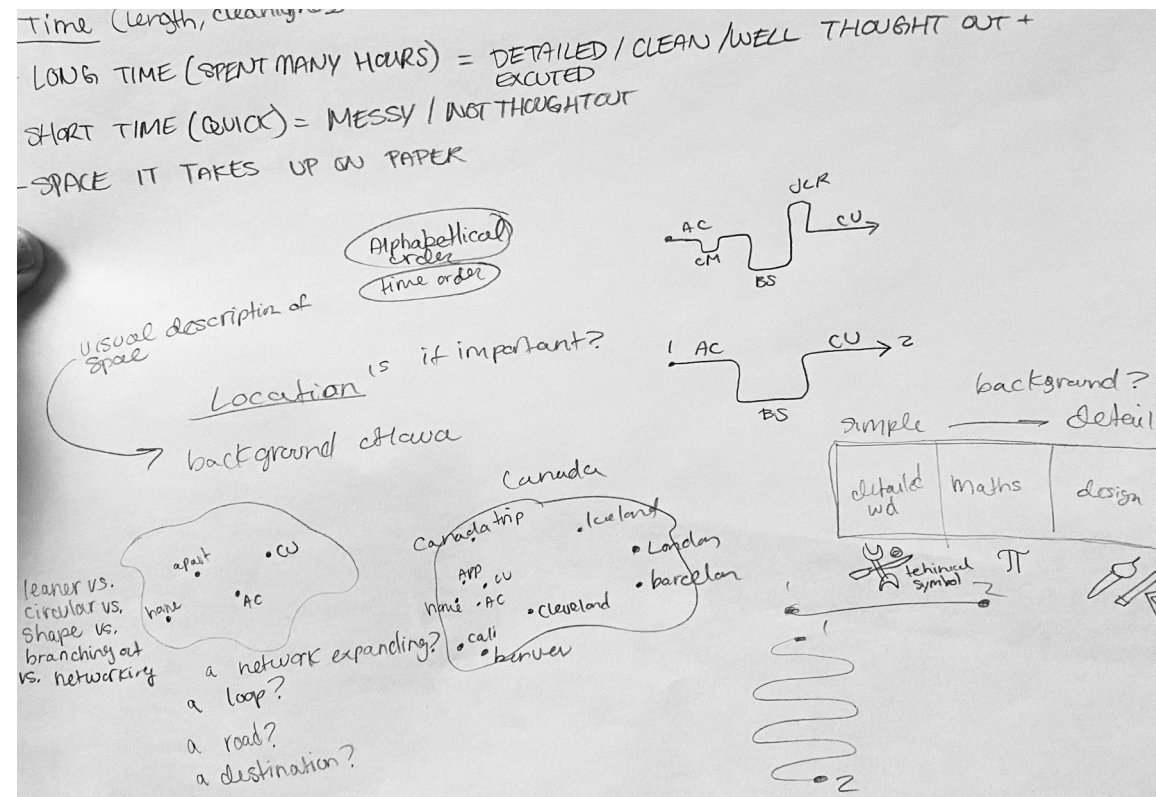 Time (length, cleanliness
- LONG TIME (SPENT MANY HOURS) = DETAILED / CLEAN / WELL THOUGHT OUT +
EXCUTED
SHORT TIME (QUICK) = MESSY / NOT THOUGHT OUT
- SPACE IT TAKES UP ON PAPER
Alphabetlical
order
time order
AC
CM
BS
JLR
CU
visual description of
space
Location is it important?
background ottawa
1 AC
BS
CU 2
background?
simple detail
detailed
wd
maths
design
tehinical
symbol
π
1 2
1
2
apart
CU
home
AC
leaner vs.
circular vs.
shape vs.
branching out
vs. networking
Canada
Canada trip
Iceland
London
barcelon
App
CU
home
AC
Cleveland
cali
Denver
a network expanding?
a loop?
a road?
a destination?